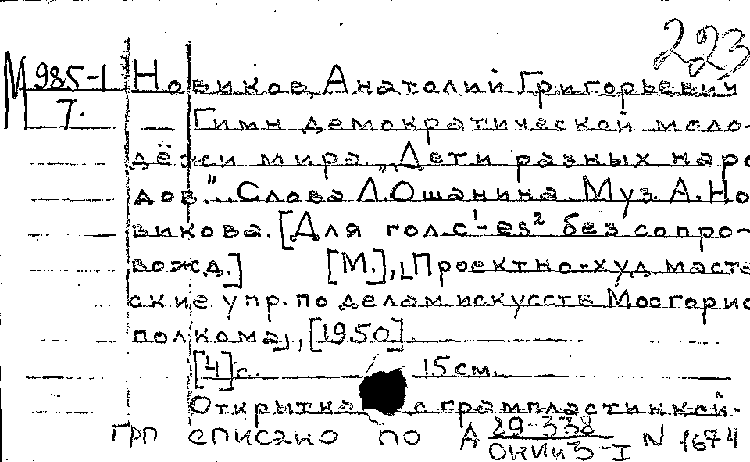 223
М 985-1 Новиков, Анатолий Григорьевич
7. Гимн демократической моло-
дёжи мира. „Дети разных наро
дов"... Слова Л.Ошанина. Муз. А. Но
викова. [Для гол. c¹-es² без сопро-
вожд.] [М.], [Проектно-худ маст
ские упр. по делам искусств Мосгорис
полкома], [1950].
[4] с. 15 см.
Открытка с грампластинкой.
Грп списано по А 29-338 ОКИиЭ-I N 1674